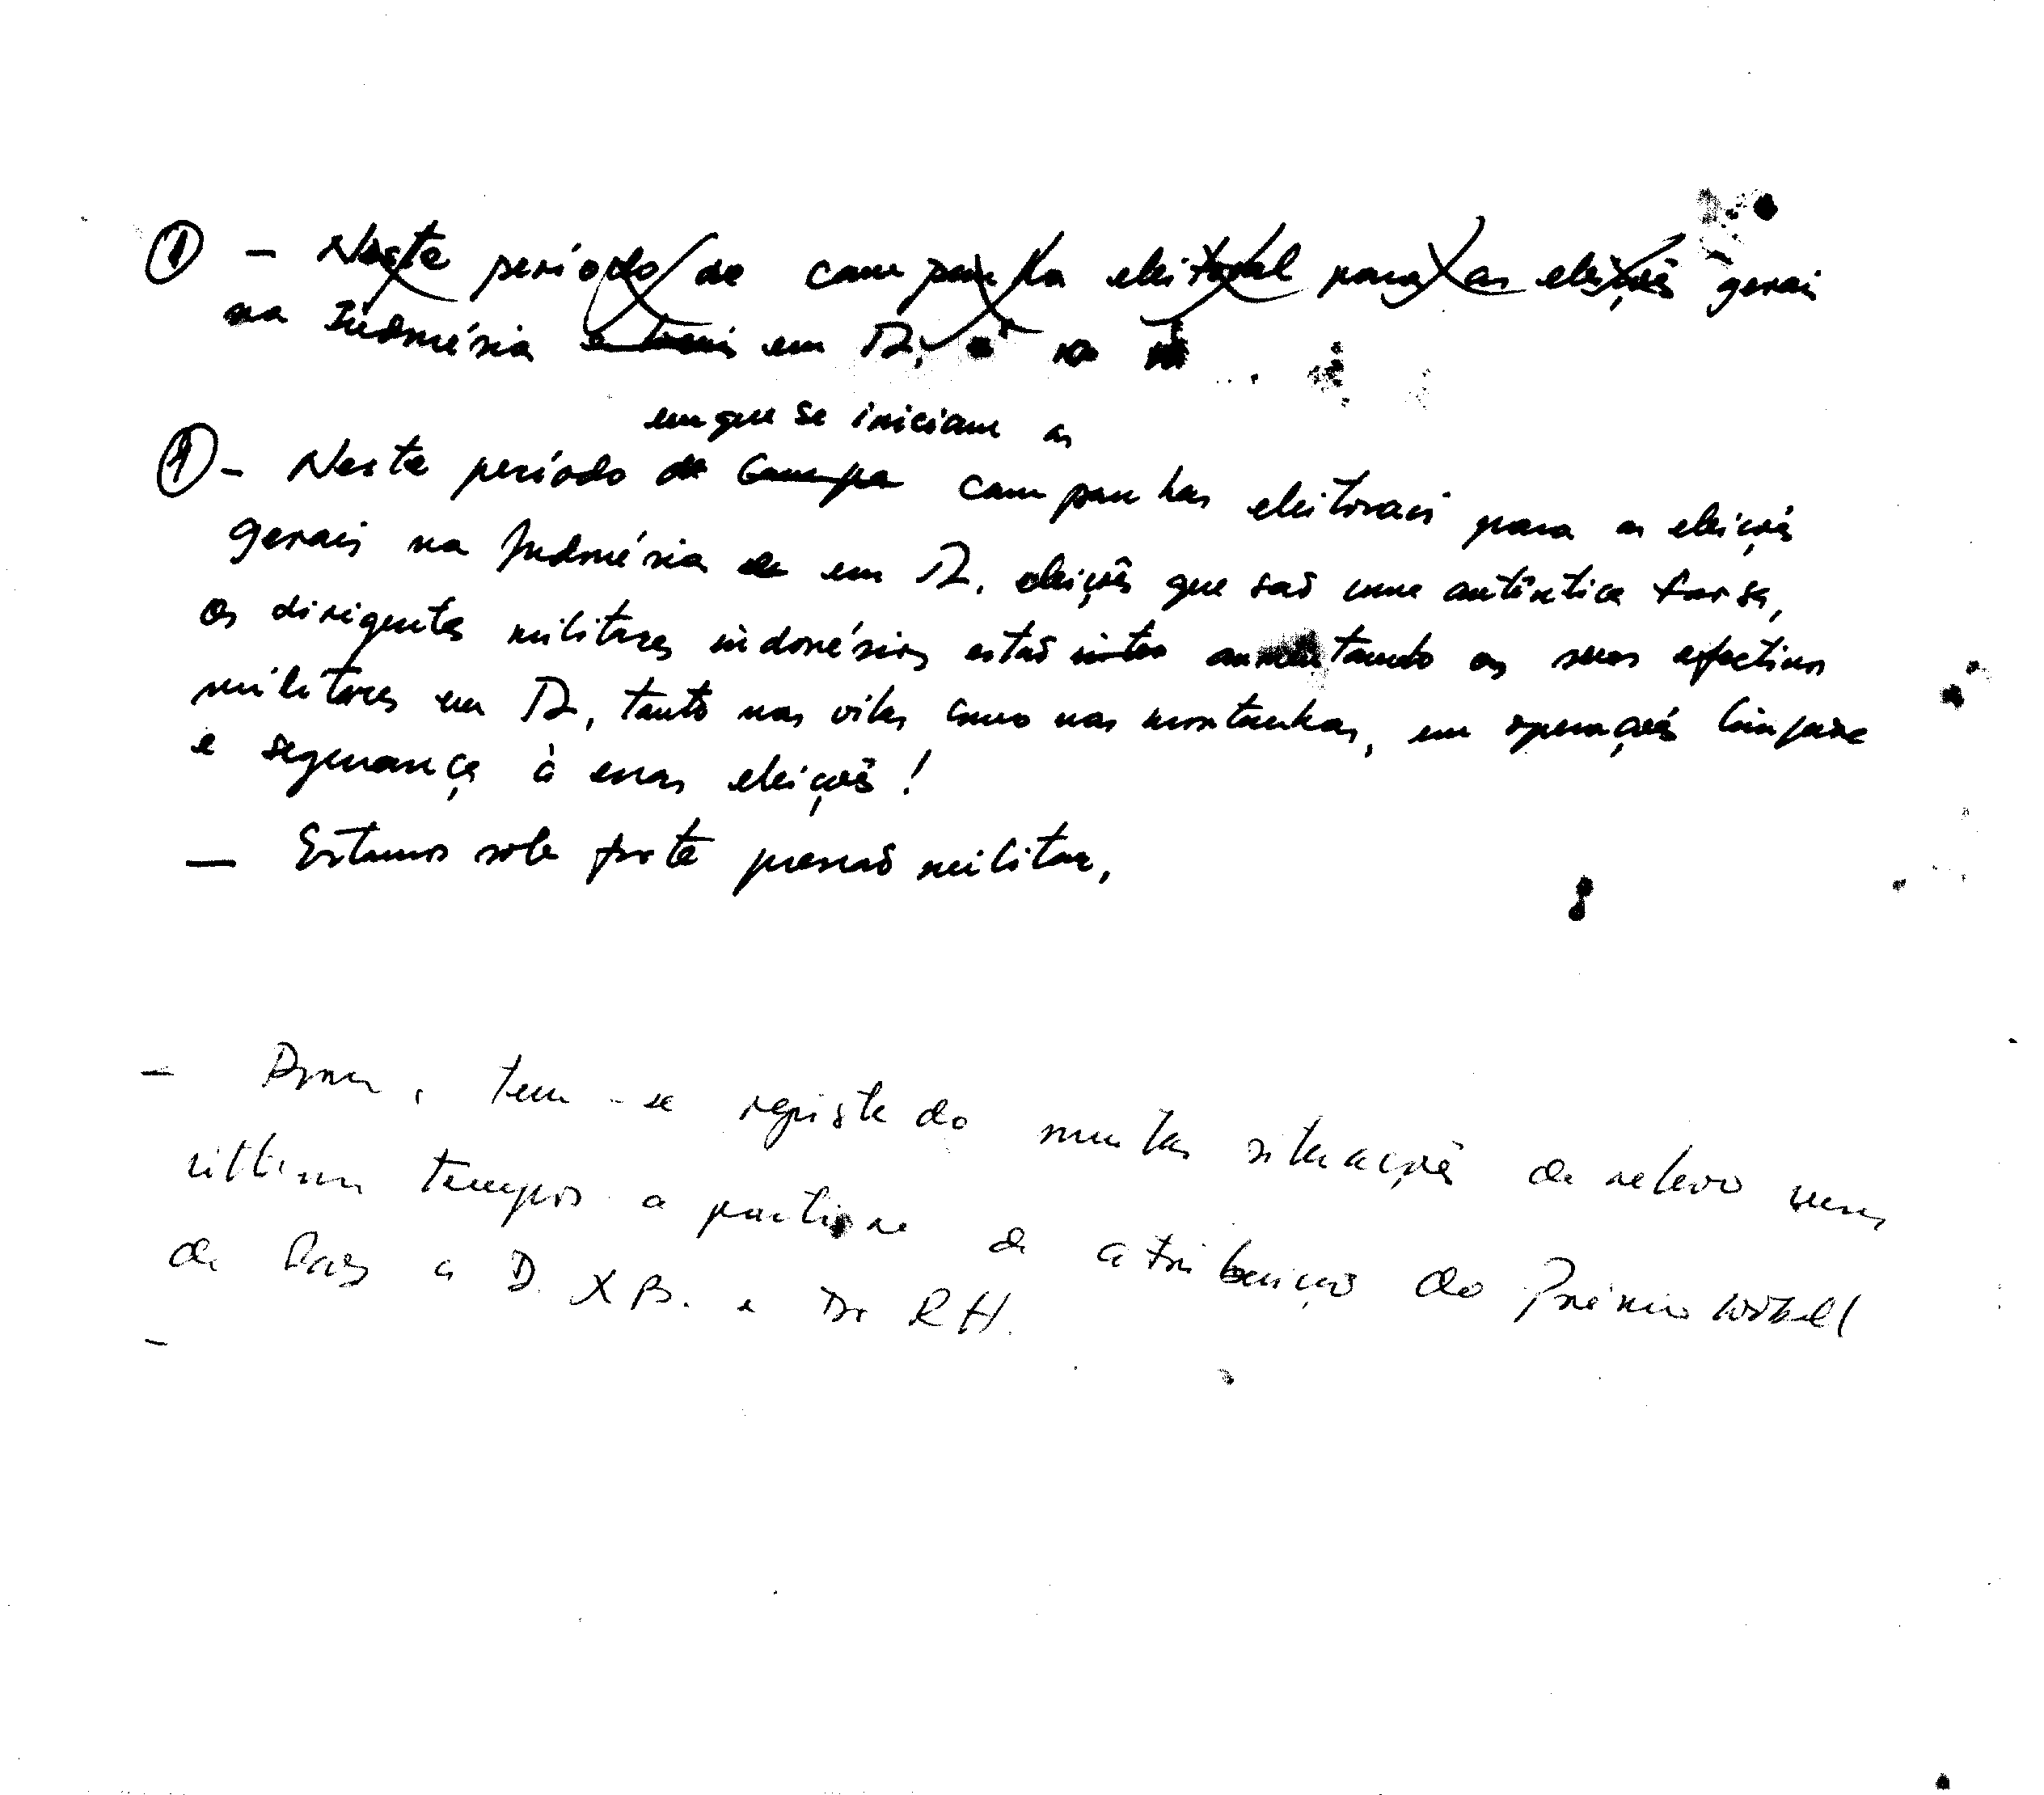 ① – Neste período de campanha eleitoral para as eleições gerais
na Indonésia em TL, na
em que se iniciam as
① – Neste período de Campa campanhas eleitorais para as eleições
gerais na Indonésia e em TL, eleições que são uma autêntica farsa,
os dirigentes militares indonésios estão aumentando os seus efectivos
militares em TL, tanto nas vilas como nas montanhas, em operações limpeza
e segurança à essas eleições!
— Estamos sob forte pressão militar,
– tem-se registado muitas situações de relevo nesses
últimos tempos a partir de atribuição do Prémio Nobell
de Paz a D. X B. e Dr R H.
–